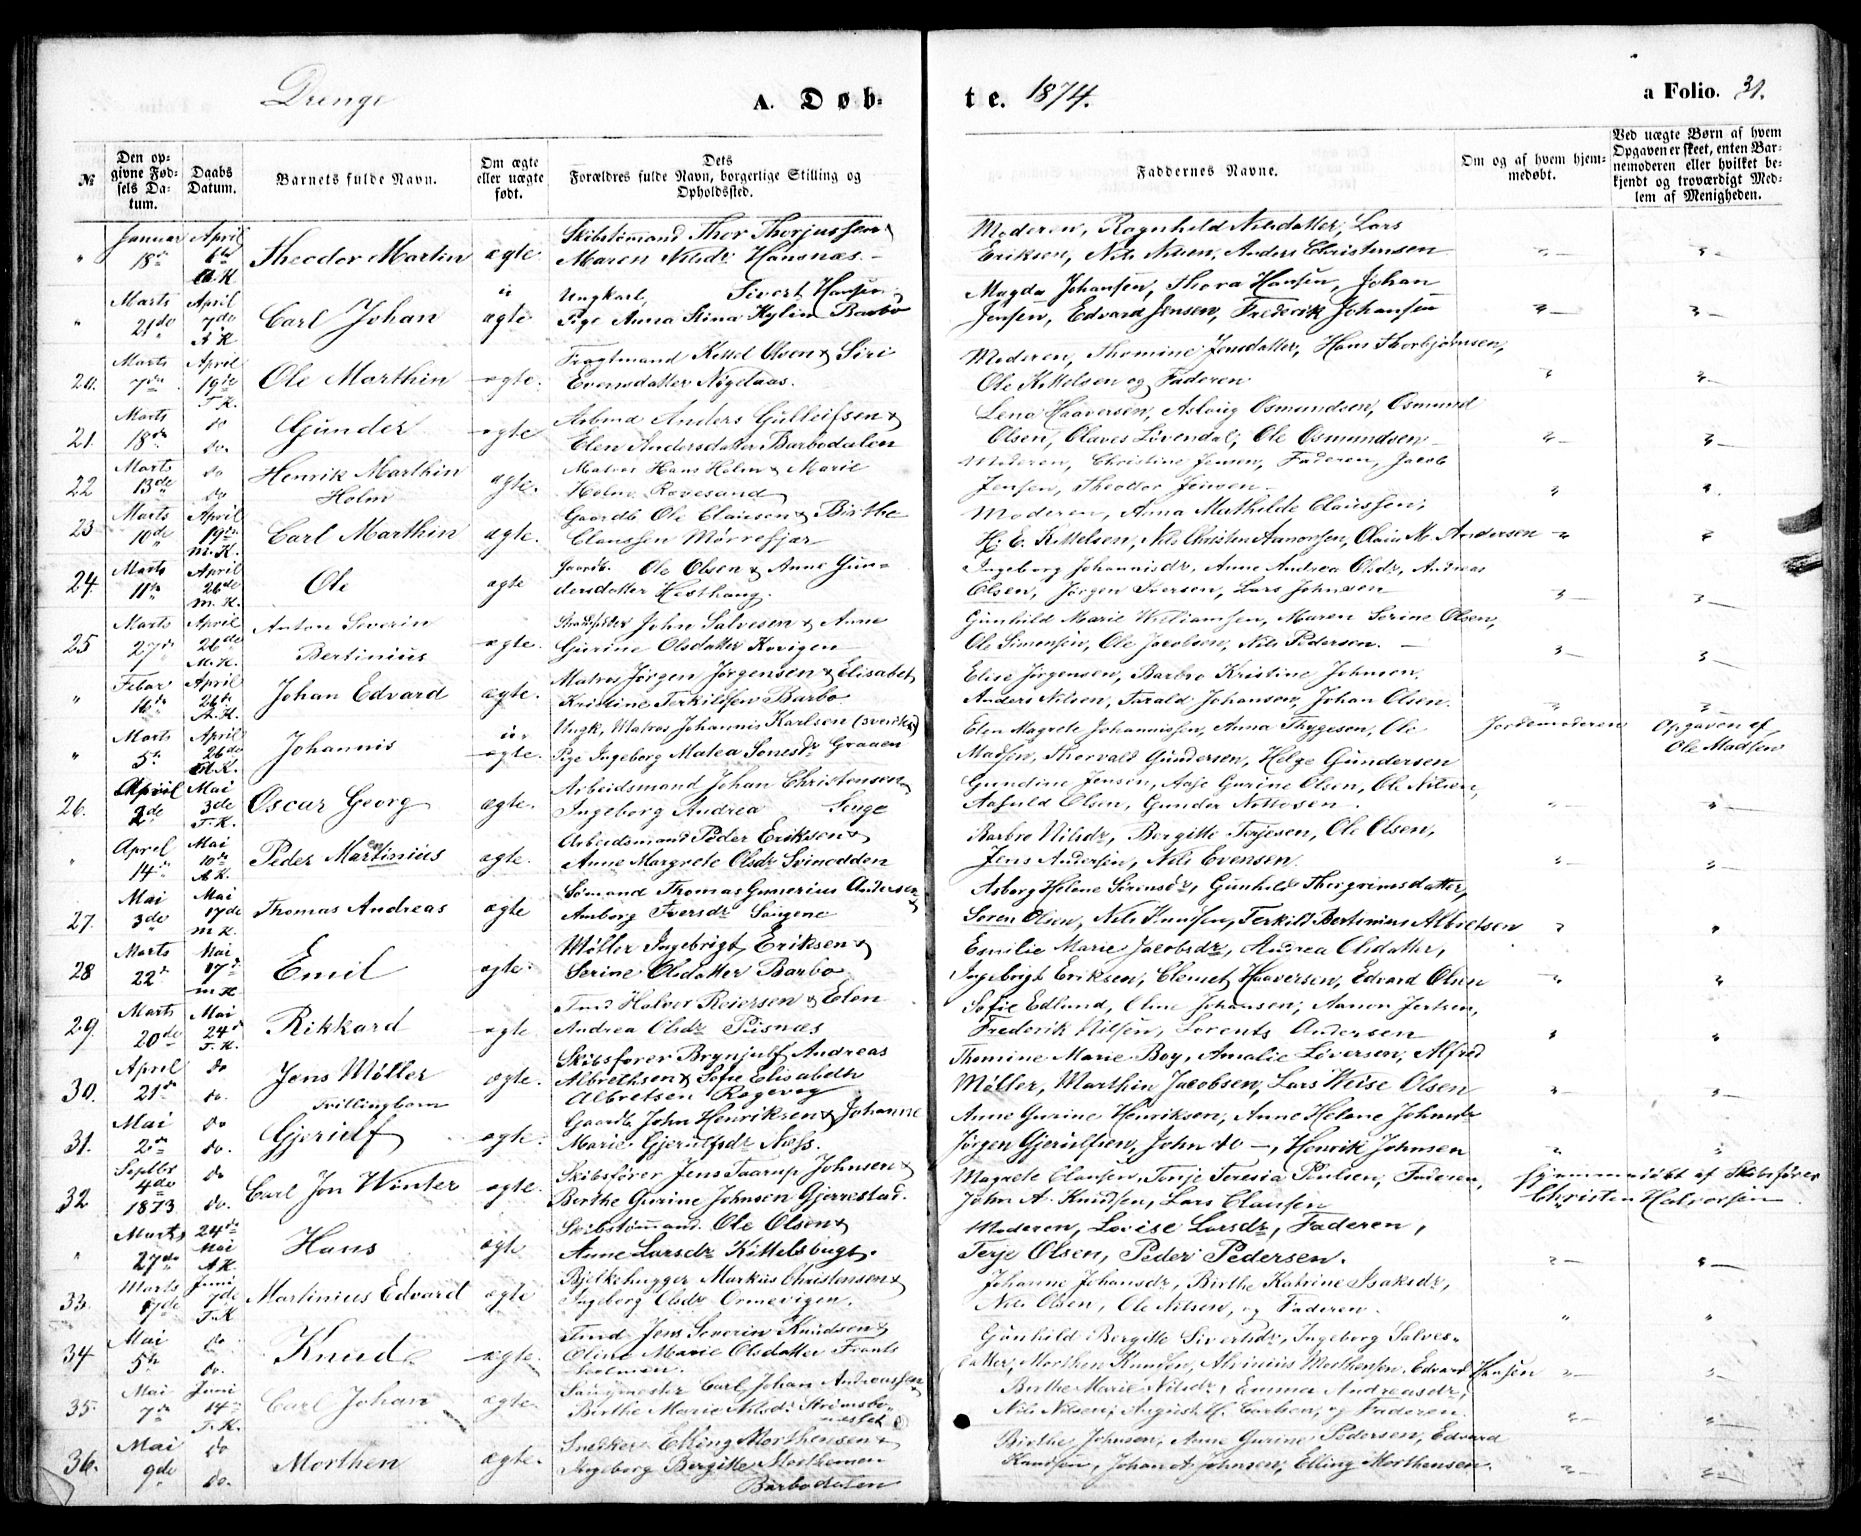 Drenge
A. Døb-
te. 1874.
a Folio. 31.
№
Den op-
givne Fød-
sels Da-
tum.
Daabs
Datum.
Barnets fulde Navn.
Om ægte
eller uægte
født.
Dets
Forældres fulde Navn, borgerlige Stilling og
Opholdssted.
Faddernes Navne.
Om og af hvem hjem-
medøbt.
Ved uægte Børn af hvem
Opgaven er skeet, enten Bar-
nemoderen eller hvilket be-
kjendt og troværdigt Med-
lem af Menigheden.
" Januar 18de April 6te A.K. Theodor Martin ægte
Skibstømmand Thor Thorjussen &
Maren Nilsdr Hansnæs.
Moderen, Ragnhild Nilsdatter, Lars
Eriksen, Nils Nilsen, Anders Christensen
" Marts 21de April 7de A.K. Carl Johan uægte
Ungkarl, Sivert Hansen &
Pige Anna Stina Hylin Barbo
Magda Johansen, Thora Hansen, Johan
Jensen, Edvard Jensen, Frederik Johansen
20. Marts 7de April 19de T.K. Ole Marthin ægte.
Fragtmand Kittel Olsen & Siri
Evensdatter Nigelaas.
Moderen, Thomine Jensdatter, Hans Thorbjørnsen,
Ole Kittelsen og Faderen
21. Marts 18de do do. Gunder ægte
Arbmd Anders Gulleifsen &
Elen Andersdatter Barbodalen
Lena Haaversen, Aslaug Osmundsen, Osmund
Olsen, Olaves Løvendal, Ole Osmundsen
22 Marts 13de do do Henrik Marthin Holm ægte.
Matros Hans Holm & Marie
Holm Revesand
Moderen, Christine Jensen, Faderen, Jacob
Jensen, Theodor Jensen
23 Marts 10de April 19de M.K. Carl Marthin ægte.
Gaardb Ole Clausen & Birthe
Claussen Mørrefjær
Moderen, Anna Mathilde Claussen,
H. E. Kittelsen, Nils Christen Aanonsen, Claus M. Andersen
24. Marts 11te April 26de M.K. Ole ægte
Gaardb. Ole Olsen & Anne Gun-
dersdatter Hesthaug.
Ingeborg Johannisdr, Anne Andrea Olsdr, Andreas
Olsen, Jørgen Iversen, Lars Johnsen
25 Marts 27de April 26de M.K. Anton Severin Bertinius ægte.
John Salvesen & Anne
Gurine Olsdatter Kovigen
Gunhild Marie Williamsen, Maren Serine Olsen,
Ole Simonsen, Ole Jacobsen, Nils Pedersen.
" Febr 16de April 26de A.K. Johan Edvard ægte.
Matros Jørgen Jørgensen & Elisabet
Kristine Terkildsen Barbo
Elise Jørgensen, Barbro Kristine Johnsen
Anders Nilsen, Tarald Johansen, Johan Olsen.
" Marts 5te April 26de A.K. Johannis uægte.
Ungk, Matros Johannis Karlsen (svensk) &
Pige Ingeborg Malea Tonesdr Graaen
Elen Magrete Johannissen, Anna Thygesen, Ole
Madsen, Thorvald Gundersen, Helge Gundersen
Jordemoderen
Opgaven af
Ole Madsen
26. April 2de Mai 3de T.K. Oscar Georg ægte.
Arbeidsmand Johan Christensen
Ingeborg Andrea Songe
Gundine Jensen, Aase Gurine Olsen, Ole Nilsen,
Aasuld Olsen, Gunder Nottosen
" April 14de Mai 10de A.K. Peder Martinius ægte.
Arbeidsmand Peder Eriksen &
Anne Margrete Olsdr Svinodden
Barbro Nilsdr, Bergitte Terjesen, Ole Olsen,
Jens Andersen, Nils Evensen
27. Mai 3de Mai 17de M.K. Thomas Andreas ægte
Sømand Thomas Gunerius Andersen &
Amborg Iversdr Songene
Asborg Helene Sørensdr, Gunhild Thorgrimsdatter,
Søren Olsen, Nils Knudsen, Terkild Bertinius Albretsen
28 Marts 22de Mai 17de M.K. Emil ægte.
Møller Ingebrigt Eriksen &
Serine Olsdatter Barbo
Emilie Marie Jacobsdr, Andrea Olsdatter,
Ingebrigt Eriksen, Clemet Haaversen, Edvard Olsen
29. Marts 20de Mai 24de T.K. Rikkard ægte
Tmd Halvor Reiersen & Elen
Andrea Olsdr Pusnæs
Sofie Edlund, Oline Johansen, Aanon Jensen,
Frederik Nilsen, Lorents Andersen
30. April 21de do do. Jens Møller Tvillingbarn ægte.
Skibsfører Brynjulf Andreas
Albrethsen & Sofie Elisabeth
Albretsen Rægevig
Thomine Marie Boy, Amalie Siversen, Alfred
Møller, Marthin Jacobsen, Lars Weise Olsen
31. Mai 2de do do. Gjerulf ægte.
Gaardb John Henriksen & Johanne
Marie Gjerulfsdr Næss.
Anne Gurine Henriksen, Anne Helene Johnsdr
Jørgen Gjerulfsen, John do —, Henrik Johnsen
32 Septbr 4de 1873 do do. Carl Jon Winter ægte.
Skibsfører Jens Taarup Johnsen &
Berthe Gurine Johnsen Gjerrestad.
Magrete Clausen, Tonje Teresia Poulsen, Faderen,
John A. Knudsen, Lars Clausen
Hjemmedøbt af Skibsfører
Christen Halvorsen
" Marts 27de 24de Mai A.K. Hans ægte
Skibstømmand. Ole Olsen &
Anne Larsdr Kittelsbugt.
Moderen, Lovise Larsdr, Faderen,
Terje Olsen, Peder Pedersen.
33. Marts 17de Juni 7de T.K. Martinius Edvard ægte
Bjelkehugger Markus Christensen &
Ingeborg Olsdr Ormevigen.
Johanne Johansdr, Birthe Katrine Isaksdr,
Nils Olsen, Ole Nilsen, og Faderen.
34 Mai 5te do do. Knud ægte.
Tmd Jens Severin Knudsen &
Oline Marie Olsdatter Frants
Gunhild Bergitte Sivertsdr, Ingeborg Salves-
datter, Morthen Knudsen, Alvinius Morthensen, Edvard Hansen
35. Mai 7de Juni 14de T.K. Carl Johan ægte.
Carl Johan Andreassen &
Birthe Marie Nilsdr Strømsbo-
Birthe Marie Nilsdr, Emma Andreasdr,
Nils Nilsen, August H. Carlsen, og Faderen
36. Mai 9de do do. Morthen ægte.
Snedker Elling Morthensen &
Ingeborg Bergitte Morthensen
Barbodalen
Birthe Johnsen, Anne Gurine Pedersen, Edvard
Knudsen, Johan A. Johnsen, Elling Morthensen.